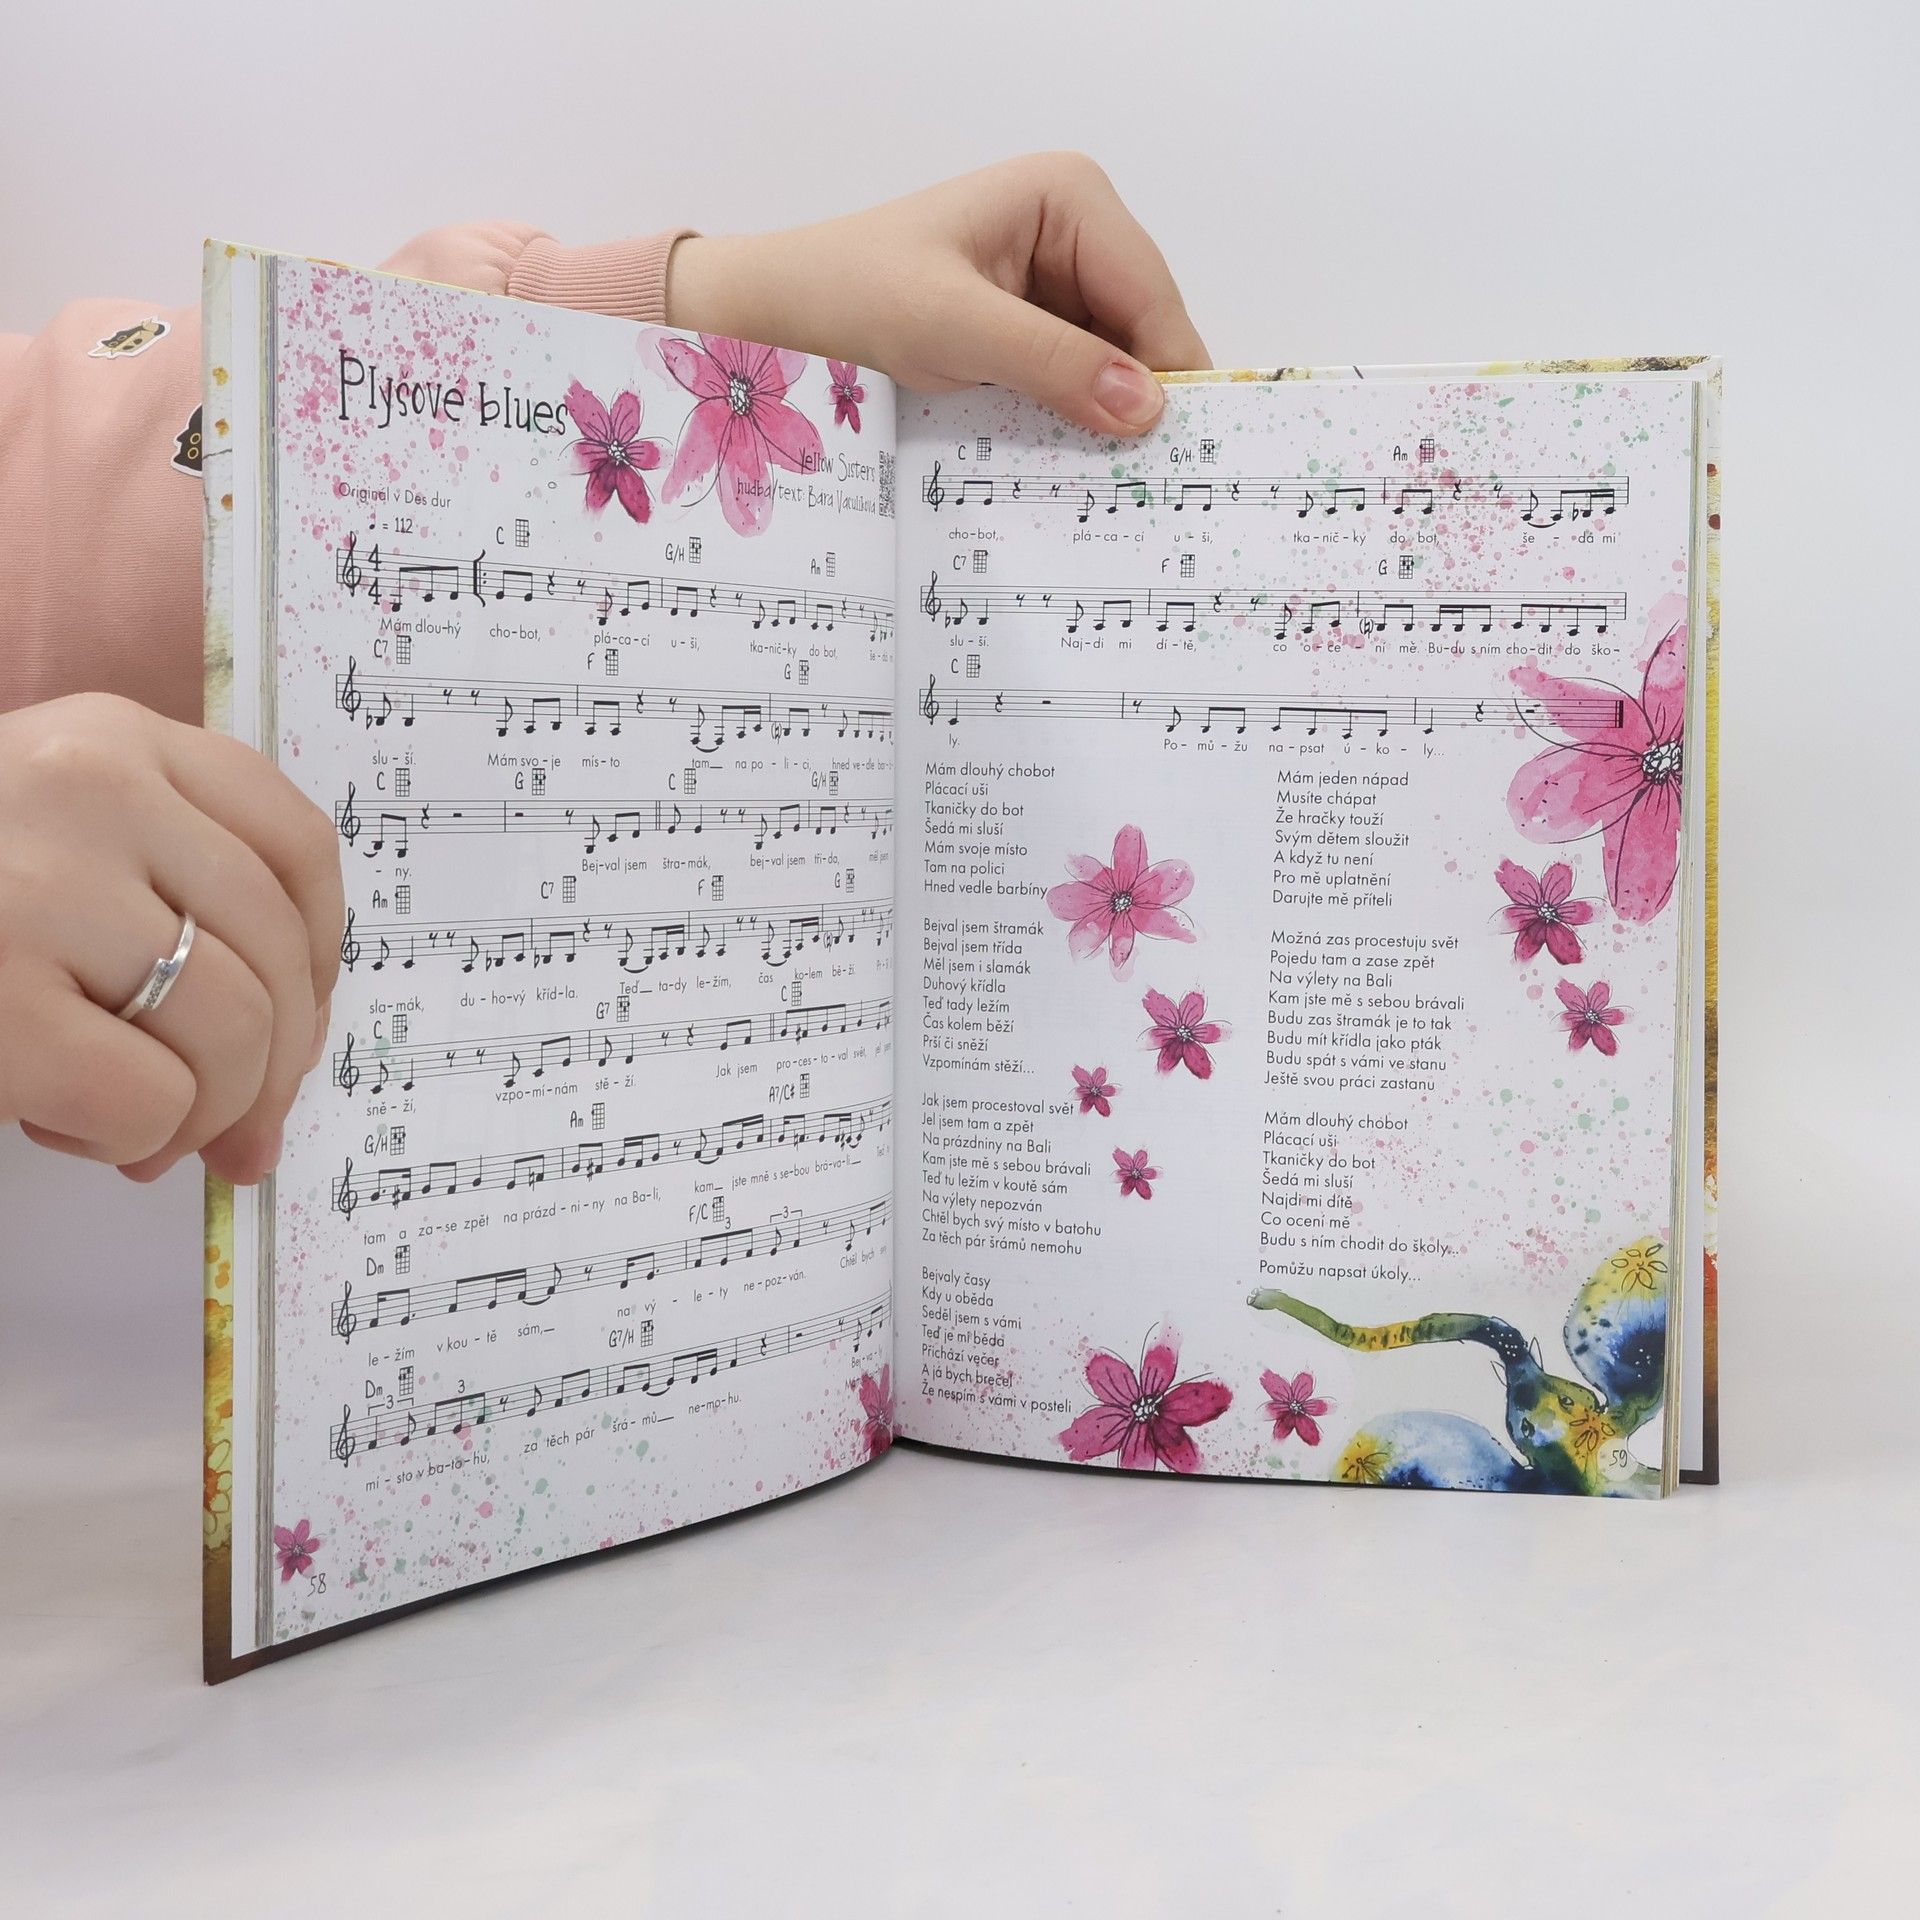 Plyšové blues
Yellow Sisters
hudba/text: Bára Vaculíková
Originál v Des dur
♩ = 112
C G/H Am
4
4
Mám dlou-hý cho-bot, plá-ca-cí u-ši, tka-nič-ky do bot, še-dá
C7 F G
slu-ší. Mám svo-je mís-to tam_ na po-li-ci, hned ve-dle
C G C G/H
- ny. Bej-val jsem štra-mák, bej-val jsem tří-da, měl jsem
Am C7 F G
sla-mák, du-ho-vý kříd-la. Teď_ ta-dy le-žím, čas ko-lem bě-ží.
C G7 C
sně-ží, vzpo-mí-nám stě-ží. Jak jsem pro-ces-to-val svět, jel jsem
G/H Am A7/C#
tam a za-se zpět na prázd-ni-ny na Ba-li, kam_ jste mně s se-bou brá-va-li_
Dm F/C
3 3
le-žím v kou-tě sám,_ na vý-le-ty ne-poz-ván. Chtěl bych svý
Dm G7/H
3 3
mí-sto v ba-to-hu, za těch pár šrá-mů_ ne-mo-hu.
58
C G/H Am
cho-bot, plá-ca-cí u-ši, tka-nič-ky do bot, še-dá mi
C7 F G
slu-ší. Naj-di mi dí-tě, co o-ce-ní mě. Bu-du s ním cho-dit do ško-
C
ly. Po-mů-žu na-psat ú-ko-ly...
Mám dlouhý chobot
Plácací uši
Tkaničky do bot
Šedá mi sluší
Mám svoje místo
Tam na polici
Hned vedle barbíny
Bejval jsem štramák
Bejval jsem třída
Měl jsem i slamák
Duhový křídla
Teď tady ležím
Čas kolem běží
Prší či sněží
Vzpomínám stěží...
Jak jsem procestoval svět
Jel jsem tam a zpět
Na prázdniny na Bali
Kam jste mě s sebou brávali
Teď tu ležím v koutě sám
Na výlety nepozván
Chtěl bych svý místo v batohu
Za těch pár šrámů nemohu
Bejvaly časy
Kdy u oběda
Seděl jsem s vámi
Teď je mi běda
Přichází večer
A já bych brečel
Že nespím s vámi v posteli
Mám jeden nápad
Musíte chápat
Že hračky touží
Svým dětem sloužit
A když tu není
Pro mě uplatnění
Darujte mě příteli
Možná zas procestuju svět
Pojedu tam a zase zpět
Na výlety na Bali
Kam jste mě s sebou brávali
Budu zas štramák je to tak
Budu mít křídla jako pták
Budu spát s vámi ve stanu
Ještě svou práci zastanu
Mám dlouhý chobot
Plácací uši
Tkaničky do bot
Šedá mi sluší
Najdi mi dítě
Co ocení mě
Budu s ním chodit do školy...
Pomůžu napsat úkoly...
59